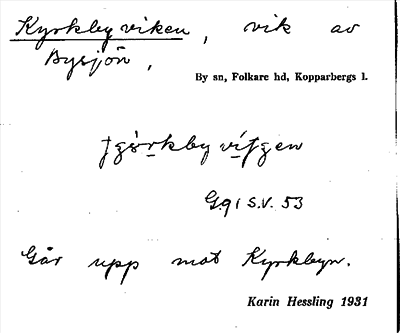 Kyrkbyviken, vik av
Bysjön,
By sn, Folkare hd, Kopparbergs l.
G91 S.V. 53
Går upp mot Kyrkbyn.
Karin Hessling 1931